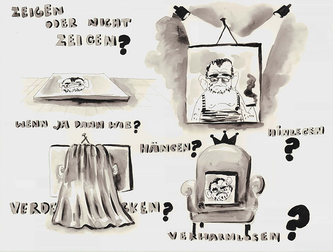 ZEIGEN
ODER NICHT
ZEIGEN?
WENN JA DANN WIE?
HÄNGEN?
HINLEGEN
?
VERDECKEN?
VERHARMLOSEN?